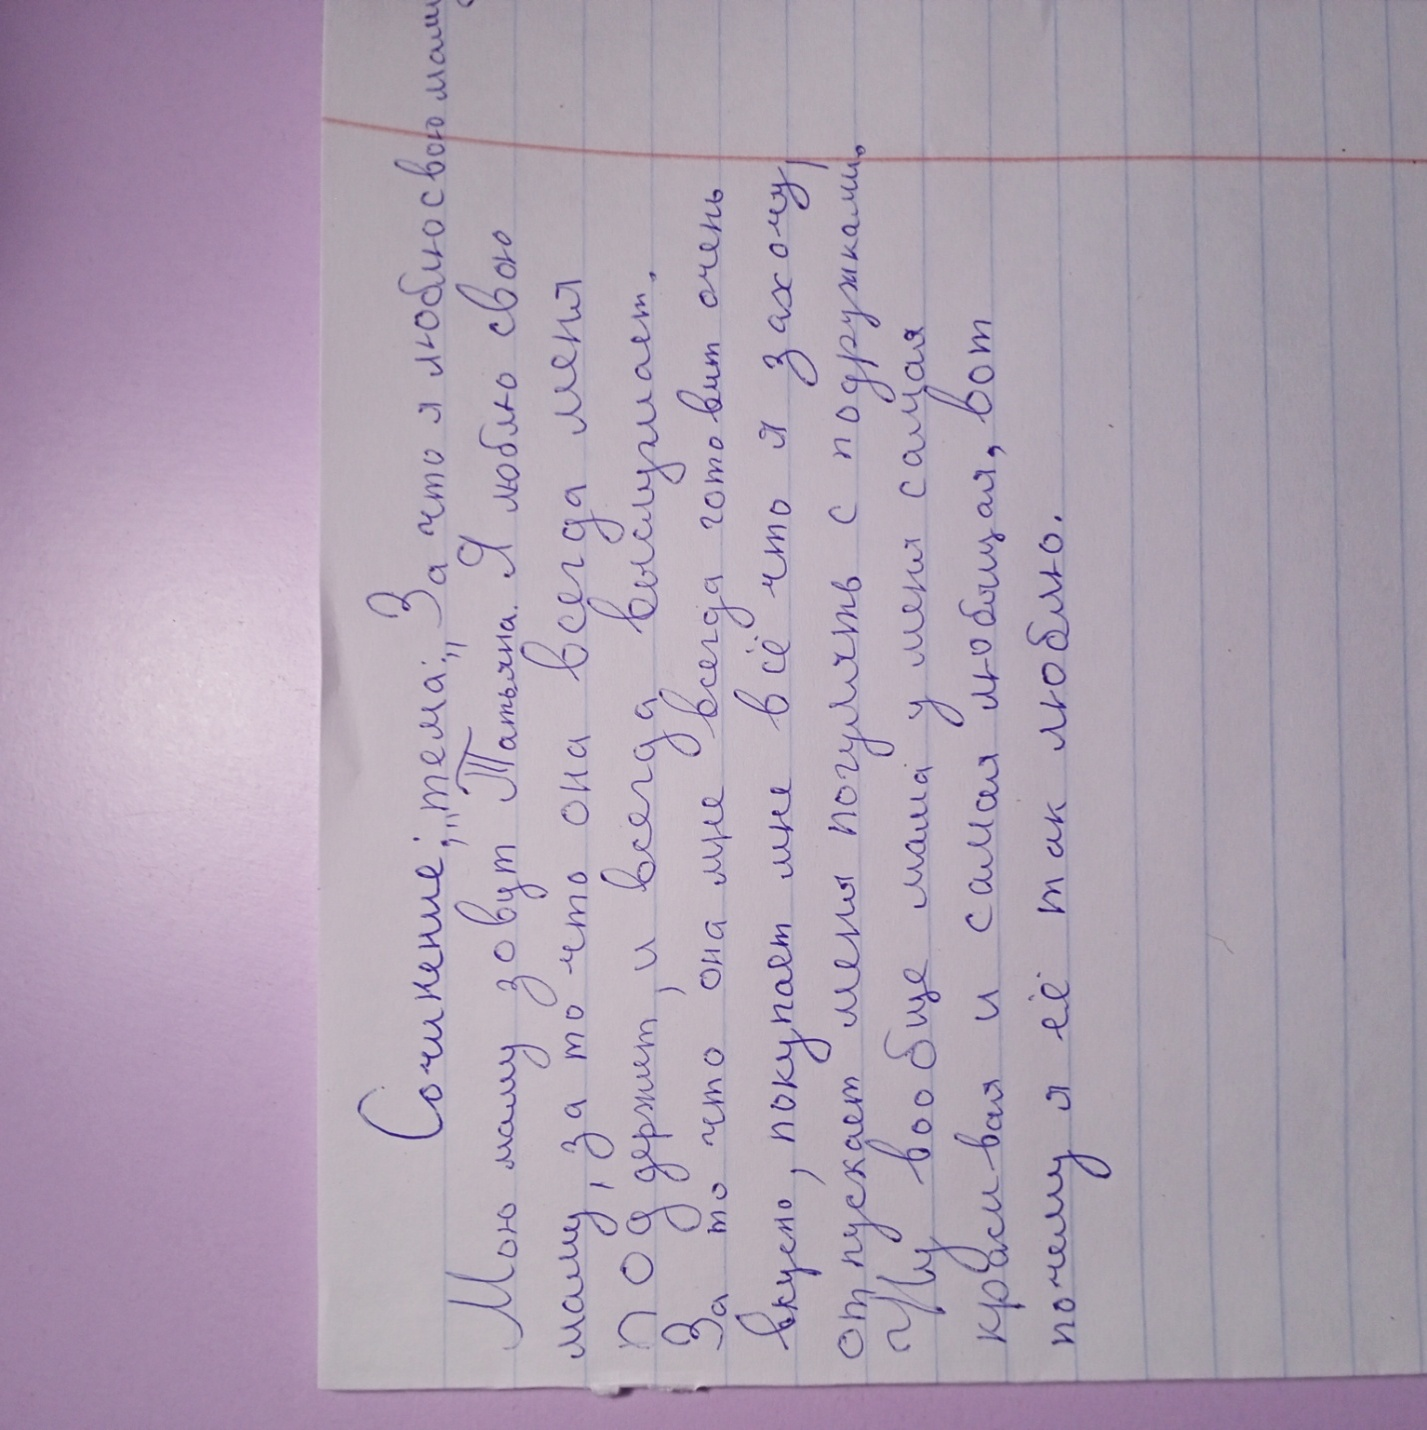 Сочинение; "тема: „ За что я люблю свою маму
Мою маму зовут Татьяна. Я люблю свою
маму, за то что она всегда меня
поддержит, и всегда выслушает.
За то что она мне всегда готовит очень
вкусно, покупает мне всё что я захочу,
отпускает меня погулять с подружками.
Ну вообще мама у меня самая
красивая и самая любящая, вот
почему я её так люблю.